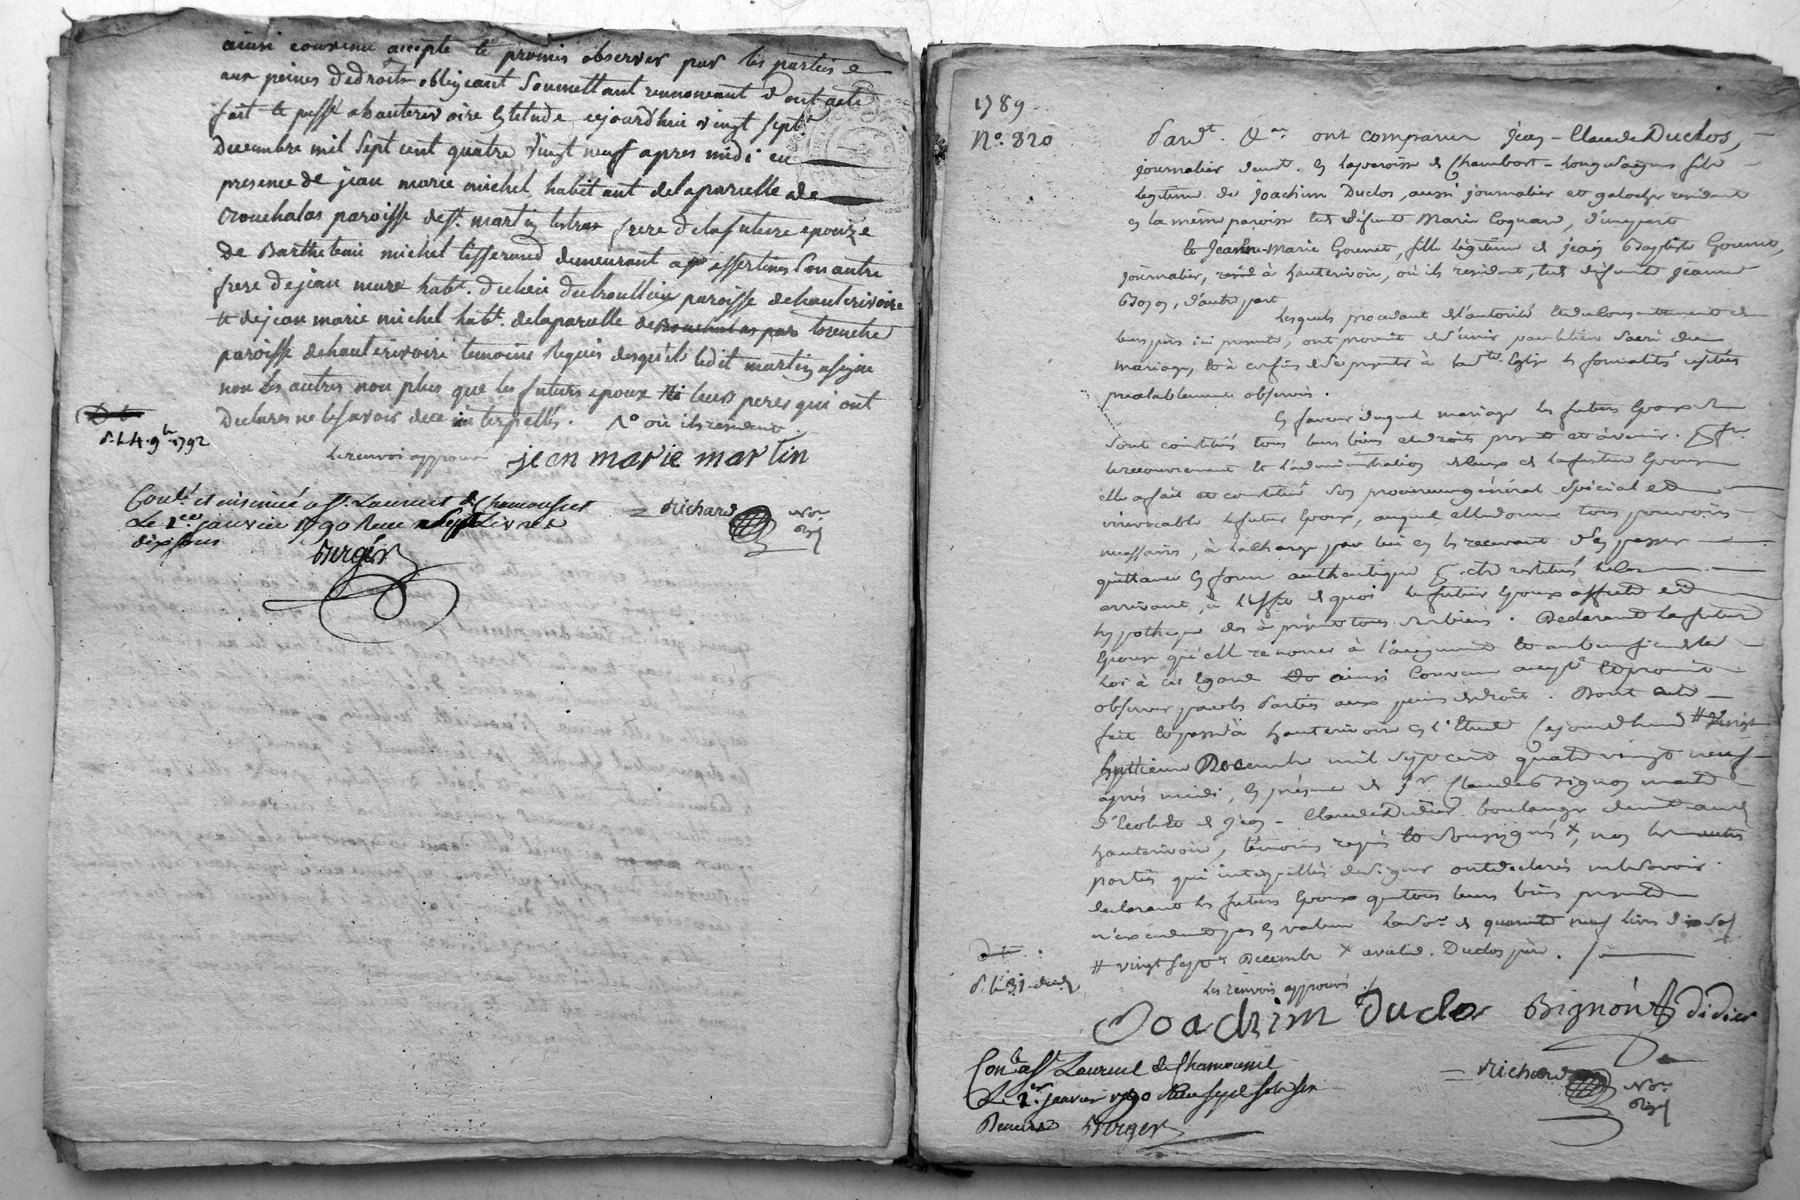 ainsi convenu accepte et promis observer par les parties e
aux peines de droits obligeant soumettant renonceant dont acte
fait et passé a hauterivoire Estetude cejourd'huy vingt sept
Decembre mil sept cent quatre vingt neuf apres midi en
presence de jean marie michel habitant de laparielle de
Crouchalas paroisse de st. martin lestras frere de la future epouze
de Barthelemi michel tisserand demeurant a essertines Son autre
frere de jean mure habt. du lieu du paroisse de hauterivoire
et de jean marie michel habt. delaparielle
paroisse de hauterivoire temoins requis desquels ledit martin a signé
non les autres non plus que les futurs epoux Ni leurs peres qui ont
Declarés ne le savoir de ce interpellés. No où ils resident.
Le renvoi approuvé jean marie martin
d. l. 4. 9bre 1792
Conlé et insinué a St. Laurent de Chamousset
Le 2 janvier 1790 Recu sept Livres
dix sous
= Richard Nore Royl
Berger
1789
No. 320
Pardt. Nre ont comparu Jean-Claude Duclos,
journalier demt. en la paroisse de Chambost-Longessaigne fils
legitime de Joachim Duclos, aussi journalier et galocher residant
en la même paroisse et defunte Marie Coquard, d'une part
et Jeanne-Marie Gounet, fille légitime de Jean Baptiste Gounet,
journalier, resid à hauterivoire, où ils resident, et défunte Jeanne
, d'autre part
Lesquels procedant de l'autorité et du consentement de
leurs pères ici presents, ont promis de s'unir par le lien sacré du
mariage, et à cet fin de se presenter à la Ste Eglise les formalités
prealablement observées.
En faveur duquel mariage les futurs Epoux se
sont constitués tous leurs biens et droits presents et à venir. Pr
le recouvrement et l'administration de ceux de la future Epouse
elle a fait et constitué son procureur général special et
irrevocable le futur Epoux, auquel elle donne tous pouvoirs
necessaires, à la charge par lui en les recevant d'en passer
quittance en forme authentique Pr. etre restitués le cas
arrivant, à l'effet de quoi le futur Epoux affecte et
hypotheque dès à présent tous ses biens. Declarant la future
Epouse qu'elle renonce à l'augment et au benefice de la
Loi à cet Egard ainsi convenu accepté et promis
observer par les Parties aux peines de droit. Dont acte
fait et passé à hauterivoire en l'Etude Cejourd'hui # vingt
huitieme Decembre mil sept cent quatre vingt neuf
après midi, en présence de Sr. Claude Bignon maitre
d'Ecole et de Jean-Claude Didier boulanger demt. aud
hauterivoire, témoins requis et soussignés x, non les autres
parties qui interpellées de signer ont declarés ne le savoir
declarant les futurs Epoux que tous leurs biens presents
n'excedent pas en valeur la Som de quarante neuf livres dix sols
# vingt sept Decembre x avec led. Duclos père.
Les renvois approuvés.
d. l. 31. dud.
Joachim Duclos Bignon Didier
Conlé a St Laurent de Chamousset
Le 2 janvier 1790 Recu sept sols six
Deniers Berger
= Richard Nore Royl